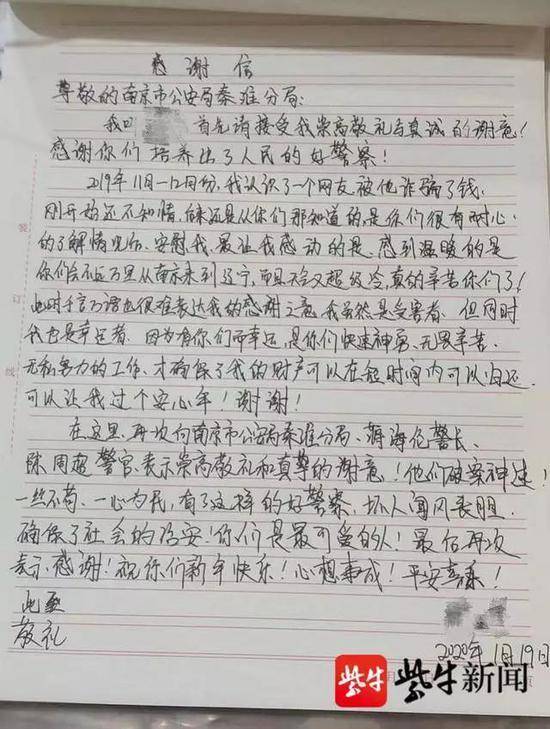 感谢信
尊敬的南京市公安局秦淮分局:
我叫 首先请接受我崇高敬礼与真诚的谢意!
感谢你们培养出了人民的好警察!
2019年11月-12月份,我认识了一个网友被他诈骗了钱,
刚开始还不知情,后来还是从你们那知道的,是你们很有耐心
的了解情况,安慰我,最让我感动的是,感到温暖的是
你们会不远万里从南京来到辽宁,而且天气又超级冷,真的辛苦你们了!
此时千言万语也很难表达我的感谢之意,我虽然是受害者,但同时
我也是幸运者,因为有你们而幸运,是你们快速神勇、无畏辛苦、
无私努力的工作,才确保了我的财产可以在短时间内可以归还,
可以让我过个安心年!谢谢!
在这里,再次向南京市公安局秦淮分局、蒋海伦警长、
陈、周超警官、表示崇高敬礼和真尊的谢意!他们破案神速!
一丝不苟、一心为民,有了这样的好警察,坏人闻风丧胆,
确保了社会的治安!你们是最可爱的人!最后再次
表示感谢!祝你们新年快乐!心想事成!平安喜乐!
此至
敬礼
2020年1月19日
装
订
线
紫牛 紫牛新闻